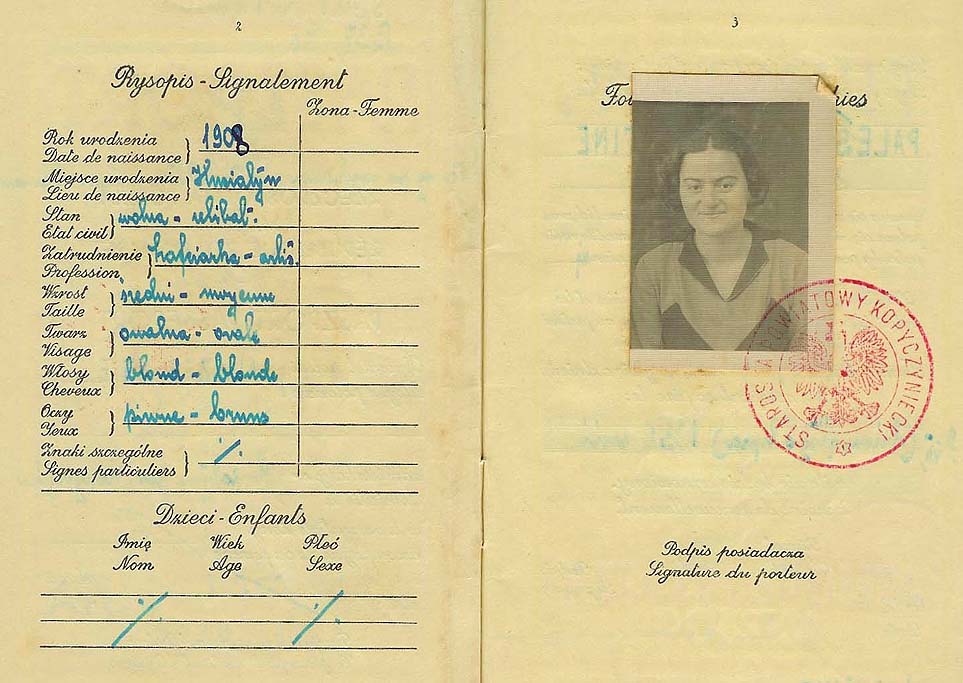 2
Rysopis - Signalement
Żona-Femme
Rok urodzenia
Date de naissance
1908
Miejsce urodzenia
Lieu de naissance
Husiatyn
Stan
Etat civil
wolna - célibat.
Zatrudnienie
Profession
hafciarka -
Wzrost
Taille
średni - moyenne
Twarz
Visage
owalna - ovale
Włosy
Cheveux
blond - blonde
Oczy
Yeux
piwne - bruns
Znaki szczególne
Signes particuliers
Dzieci - Enfants
Imię Wiek Płeć
Nom Age Sexe
3
PALESTINE
STAROSTA POWIATOWY KOPYCZYNIECKI
Podpis posiadacza
Signature du porteur